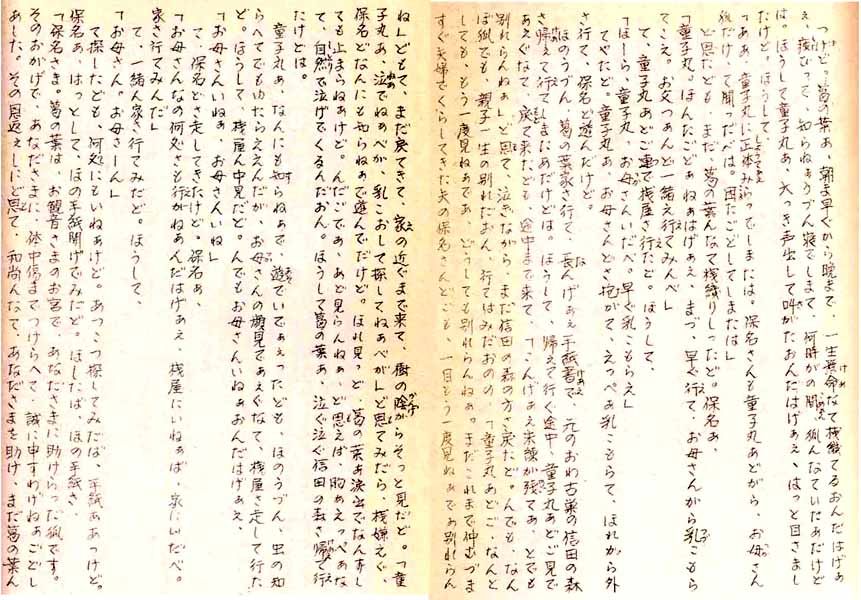 つけど。葛の葉ぁ、朝ま早ぐから晩まで、一生懸命なて機織てるおんだはげぁ
ぇ、疲びって、知らねぁうづん寝でしまて、何時がの間、狐んなていだあだけど
は。ほうして童子丸ぁ、大っき声出して叫がたおんだはげぁぇ、はっと目さまし
たけど。ほうして、
「ああ、童子丸に正体みらってしまたは。保名さんも童子丸あどがら、お母さん
狐だけ、て聞ったべは。困たごどしてしまたは」
ど思たども、まだ、葛の葉んなて機織りしったど。保名ぁ、
「童子丸。ほんたごどぁねぁはげぁぇ、まづ、早ぐ行て、お母さんがら乳こもら
てこえ。お父つぁんど一緒ぇ行てみんべ」
て、童子丸あどご連で機屋さ行たど。ほうして、
「ほーら、童子丸、お母さんいだべ。早ぐ乳こもらえ」
てやたど。童子丸ぁ、お母さんどさ抱がて、えっぺぁ乳こもらて、ほれがら外
さ行て、保名ど遊んだけど。
ほのうづん、葛の葉家さ行て、長んげぁぇ手紙書で、元のおわ古巣の信田の森
さ帰えて行てしまたあだけどは。ほうして、帰えて行ぐ途中、童子丸あどご見で
あえぐなて、戻て来たども、途中まで来て、「こんげぁぇ未練が残てあ、とでも
別れらんねぁぇ」ど思て、泣ぎながら、まだ信田の森の方さ戻たど。んでも、なん
ぼ狐でも、親子一生の別れだおん、行てはみだおのの、「童子丸あどご、なんと
しても、もう一度見ねぁであ、どうしても別れらんねぁぇ。まだこれまで仲むづま
すぐ夫婦でくらしてきた夫の保名さんどごも、一目もう一度見ねぁであ別れらん
ね」どもて、まだ戻てきて、家の近ぐまで来て、樹の陰がらそっと見だど。「童
子丸ぁ、泣でねぁべが、乳こおして探してねぁべが」ど思てみだら、機嫌えぐ、
保名どなんにも知らねぁで遊んでだけど。ほれ見っど、葛の葉ぁ涙出でなんすし
ても止まらねぁけど。んだごであ、あど見らんねぁ、ど思えば、胸ぁえっぺぁな
て、自然で泣げでくるんだおん。ほうして葛の葉ぁ、泣ぐ泣ぐ信田の森さ帰て行
たけどは。
童子丸ぁ、なんにも知らねぁで、遊でいでぁぇったども、ほのうづん、虫の知
らへてでもゆたらええんだが、お母さんの顔見であぇぐなて、機屋さ走して行た
ど。ほうして、機屋ん中見だど。んでもお母さんいねぁおんだはげぁぇ、
「お母さんいねぁ、お母さんいね」
て、保名どさ走してきたけど。保名ぁ、
「お母さんなの何処さも行がねぁんだはげぁぇ、機屋にいねぁば、家にいだべ。
家さ行てみんだ」
て、一緒ん家さ行てみだど。ほうして、
「お母さん。お母さーん」
て探したども、何処にもいねぁけど。あつこつ探してみだば、手紙ああっけど。
保名ぁ、はっとして、ほの手紙開げでみだど。ほしたば、ほの手紙さ、
「保名さま。葛の葉は、お観音さまのお宮で、あなださまに助けらった狐です。
そのおかげで、あなださまに、体中傷までつけらへて、誠に申すわげねぁごどし
あした。その恩返えしにど思て、和尚んなて、あなださまを助け、まだ葛の葉ん